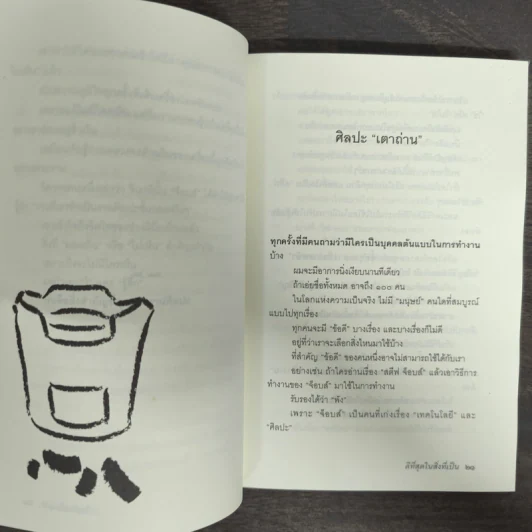 ศิลปะ "เตาถ่าน"
ทุกครั้งที่มีคนถามว่ามีใครเป็นบุคคลต้นแบบในการทำงาน
บ้าง
ผมจะมีอาการนิ่งเงียบนานทีเดียว
ถ้าเอ่ยชื่อทั้งหมด อาจถึง ๑๐๐ คน
ในโลกแห่งความเป็นจริง ไม่มี "มนุษย์" คนใดที่สมบูรณ์
แบบไปทุกเรื่อง
ทุกคนจะมี "ข้อดี" บางเรื่อง และบางเรื่องก็ไม่ดี
อยู่ที่ว่าเราจะเลือกสิ่งไหนมาใช้บ้าง
ที่สำคัญ "ข้อดี" ของคนหนึ่งอาจไม่สามารถใช้ได้กับเรา
อย่างเช่น ถ้าใครอ่านเรื่อง "สตีฟ จ็อบส์" แล้วเอาวิธีการ
ทำงานของ "จ็อบส์" มาใช้ในการทำงาน
รับรองได้ว่า "พัง"
เพราะ "จ็อบส์" เป็นคนที่เก่งเรื่อง "เทคโนโลยี" และ
"ศิลปะ"
ดีที่สุดในสิ่งที่เป็น